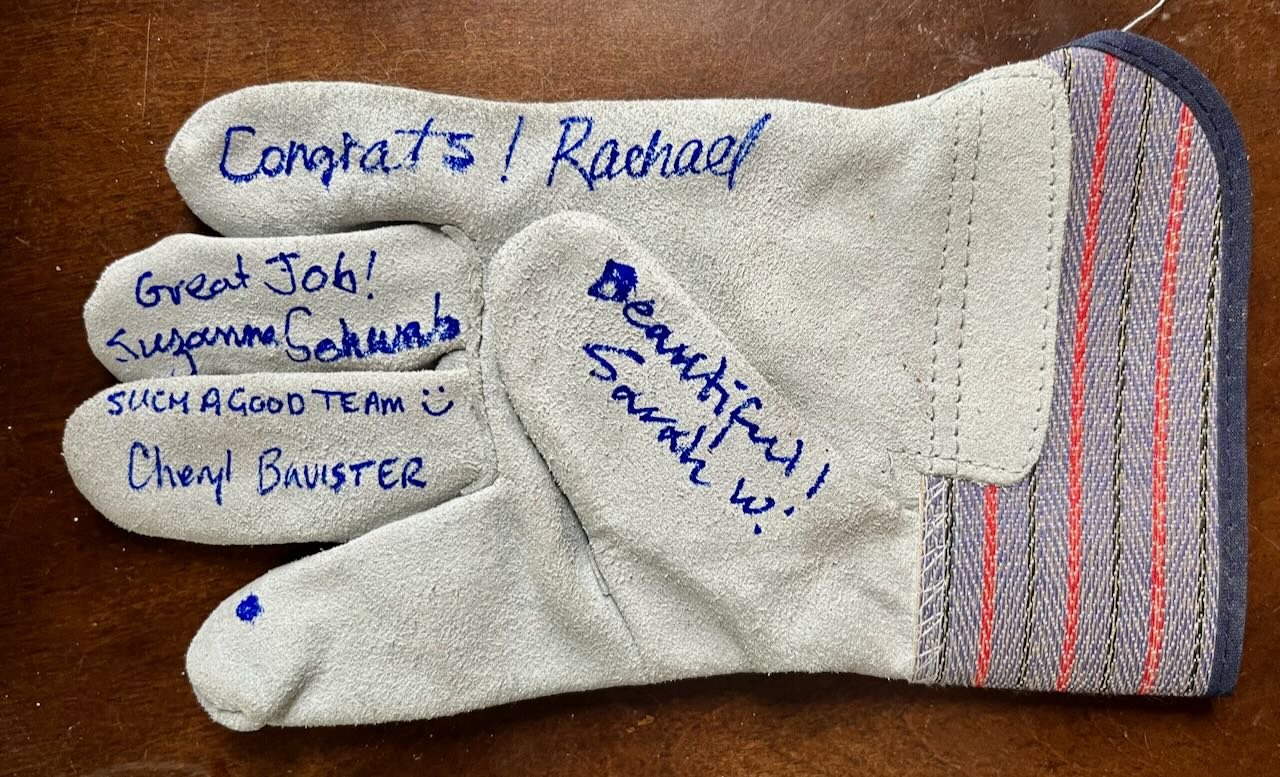 Congrats! Rachael
Great Job!
Suzanne Schwab
SUCH A GOOD TEAM
Cheryl BAVISTER
Beautiful!
Sarah W.